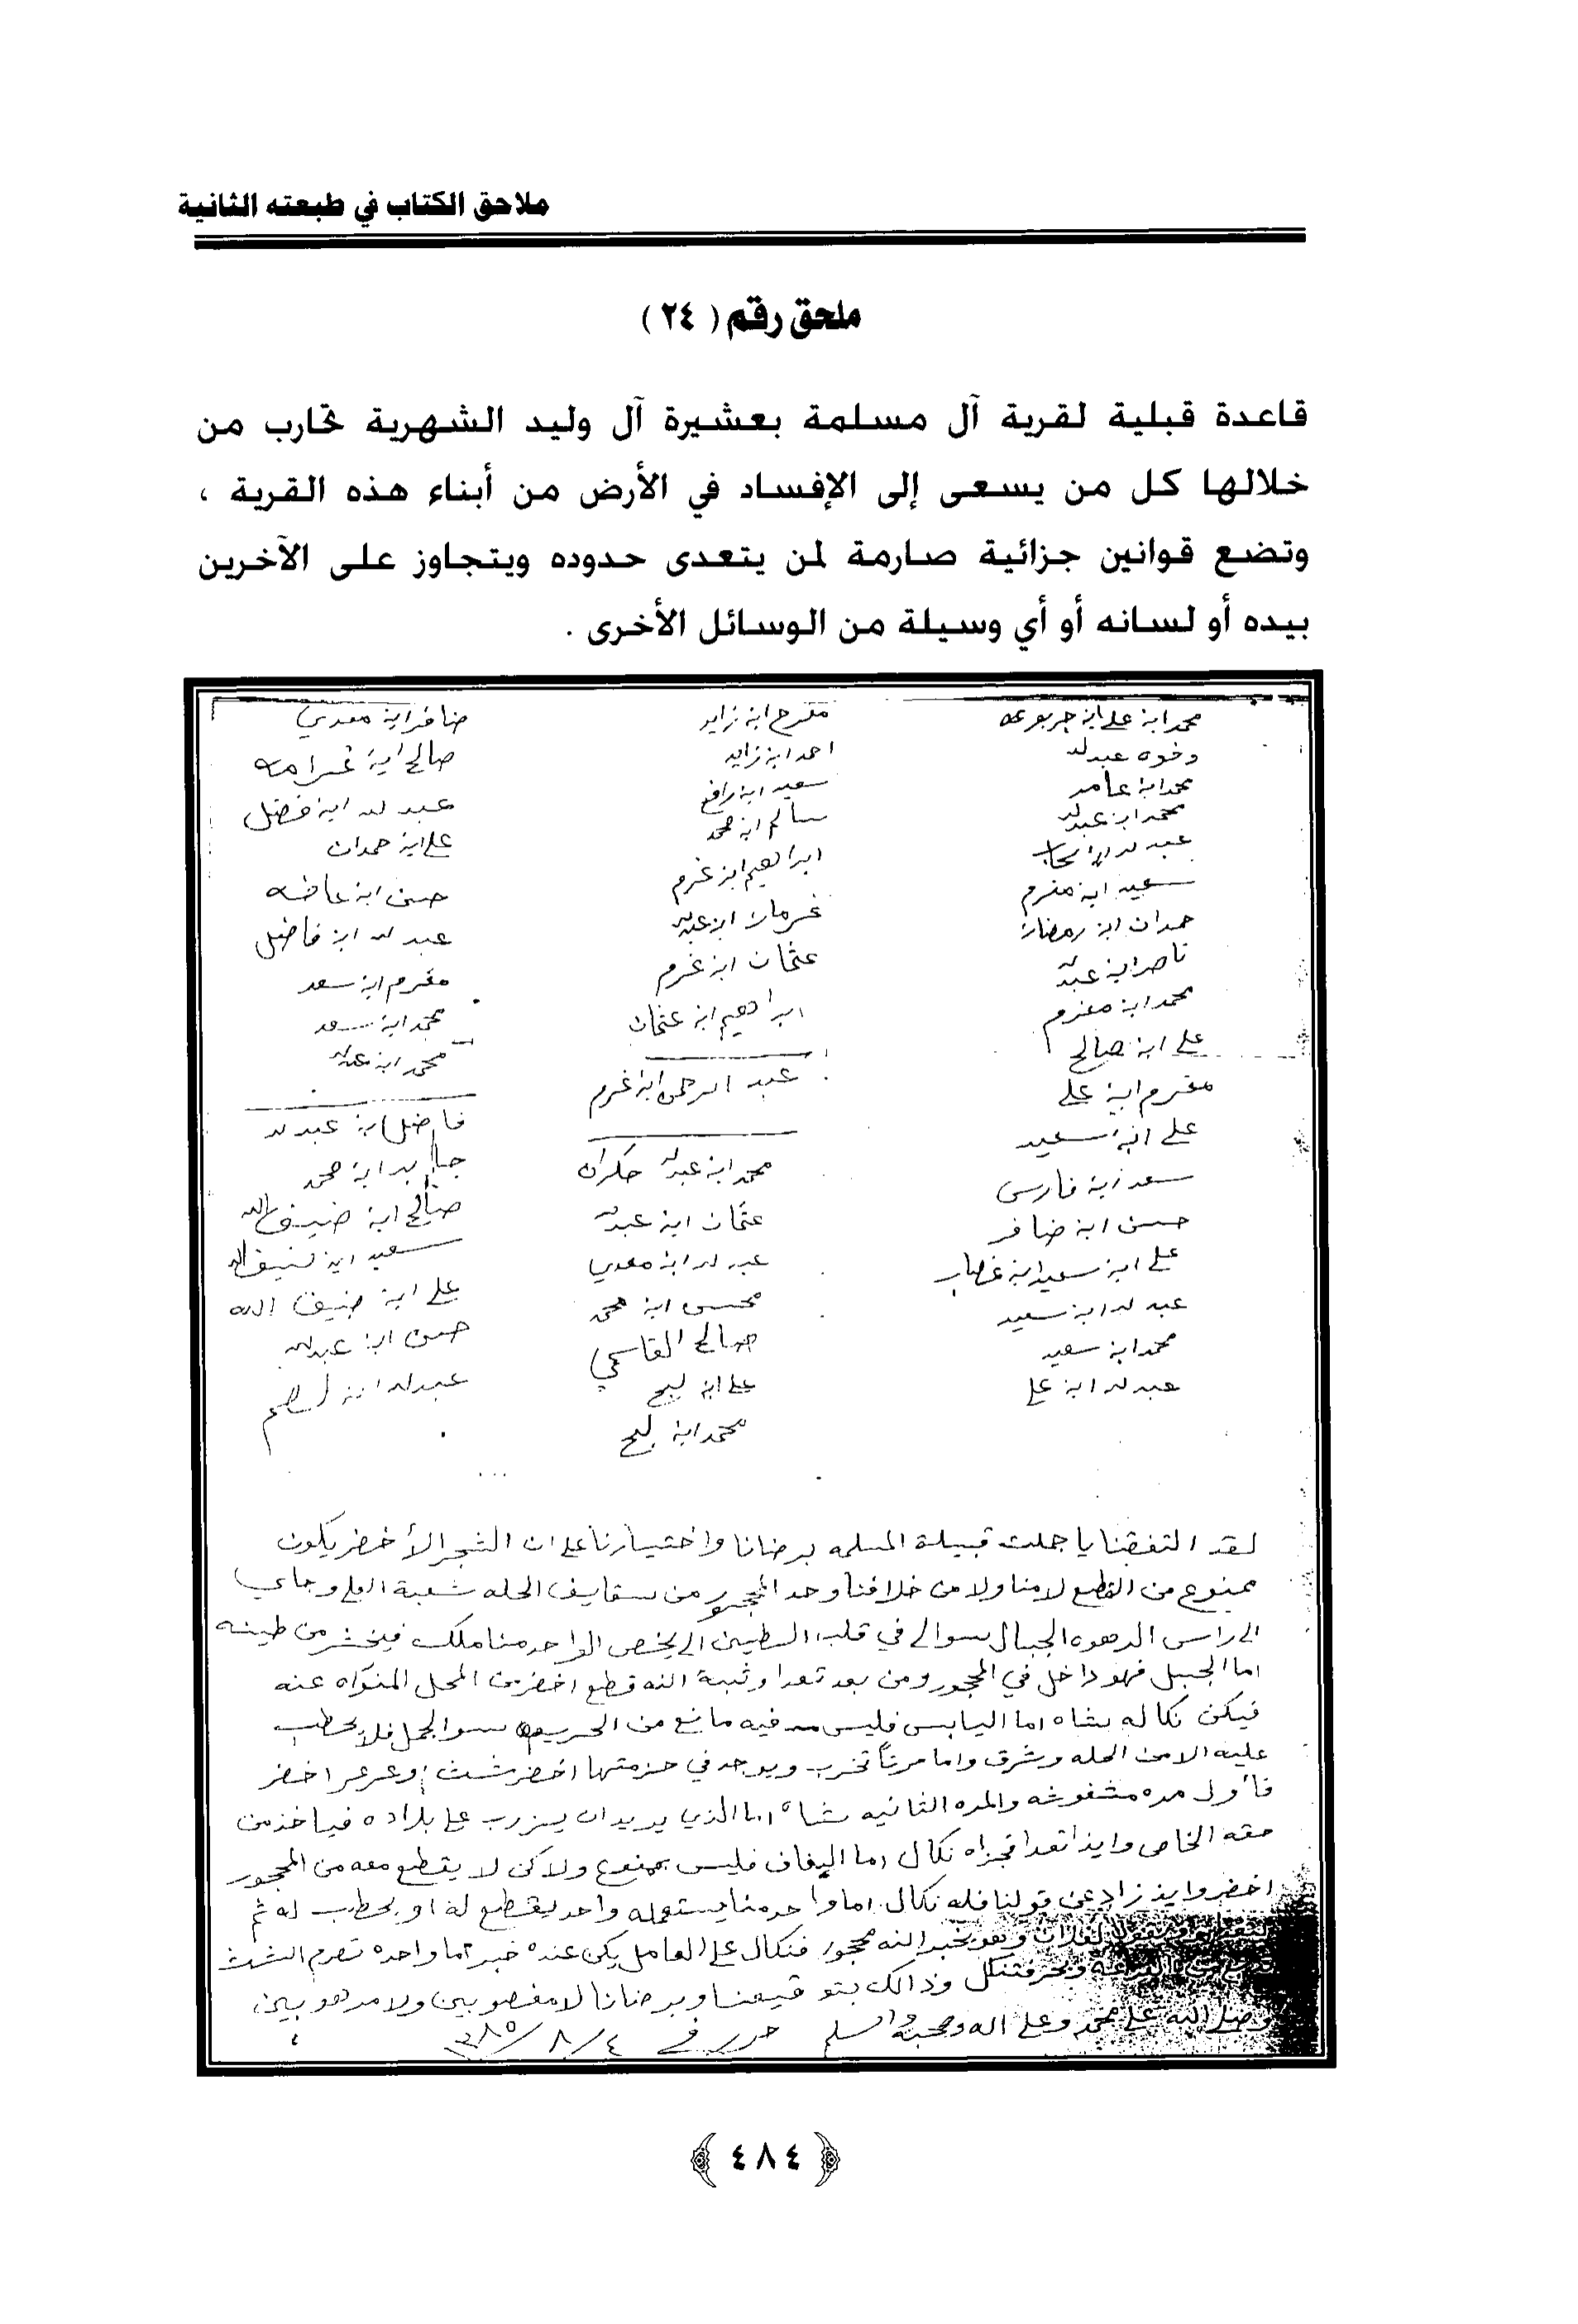 ملاحق الكتاب في طبعته الثانية
ملحق رقم ( ٢٤ )
قاعدة قبلية لقرية آل مسلمة بعشيرة آل وليد الشهرية تحارب من
خلالها كل من يسعى إلى الإفساد في الأرض من أبناء هذه القرية ،
وتضع قوانين جزائية صارمة لمن يتعدى حدوده ويتجاوز على الآخرين
بيده أو لسانه أو أي وسيلة من الوسائل الأخرى .
محمد ابن علي ابن
وخوه عبدلله
محمد ابن عامر
محمد ابن عبدلله
عبدلله ابن
سعيد ابن مغرم
حمدان ابن رمضان
ناصر ابن عبدلله
محمد ابن مغرم
علي ابن صالح
مغرم ابن علي
علي ابن سعيد
سعد ابن فارس
حسن ابن ضافر
علي ابن سعيد ابن غصاب
عبدلله ابن سعيد
محمد ابن سعيد
عبدلله ابن علي
مفرح ابن زايد
احمد ابن زايد
سعيد ابن رافع
سالم ابن محمد
ابراهيم ابن غرم
غرمان ابن عبدلله
عثمان ابن غرم
ابراهيم ابن عثمان
عبد الرحمن ابن غرم
محمد ابن عبدلله حكران
عثمان ابن عبدلله
عبدلله ابن معدي
محسن ابن محمد
صالح القاسمي
علي ابن
محمد ابن
ضافر ابن معدي
صالح ابن غرامه
عبدلله ابن فضل
علي ابن حمدان
حسن ابن عائضه
عبدلله ابن فاضل
مغرم ابن سعد
محمد ابن سعد
محمد ابن عبدلله
فاضل ابن عبدلله
جابر ابن محمد
صالح ابن ضيف الله
سعيد ابن ضيف الله
علي ابن ضيف الله
حسن ابن عبدلله
عبدلله ابن
لقد التفقنا يا جملت قبيلة المسلمه برضانا واختيارنا على ان الشجر الأخضر يكون
ممنوع من القطع لا منا ولا من خلافنا وحد المحجور من سقايف الحله شعبة العلي وجاي
الى راس الرهوه الجبال سوالي في قلب السطين الي يخص الواحد منا ملك فيخشر من طينه
اما الجبل فهو داخل في المحجور ومن بعد تعدا وثبة انه قطع اخضر من المحل المنواه عنه
فيكن نكاله بشاه اما اليابس فليس فيه مانع من الحريم سوا الجمل فلا يحطب
عليه الا من الحله وشرق واما مرتاً تخرب ويوجد في حزمتها اخضر شث اوعرعر اخضر
فأول مره مشفوشه والمره الثانيه شاه اما الذي يريد ان يزرب على بلاده فياخذ من
حقه الخاص وايذا تعدا فجزاه نكال اما اليفان فليس بممنوع ولاكن لا يقطع معه من المحجور
اخضر وايذ زاد عن قولنا فله نكال اما واحد منا يستعمله واحد يقطع له او يحطب له ثم
لفلان وهو يخبر انه محجور فنكال على العامل يكن عنده خبر اما واحده تصرم الشث
وذالك بتوقيعنا وبرضانا لا مغصوبين ولا مرهوبين
وصلى الله على محمد وعلى اله وصحبه وسلم حرر في ٤ / ٨ / ١٣٨٥
﴿ ٤٨٤ ﴾